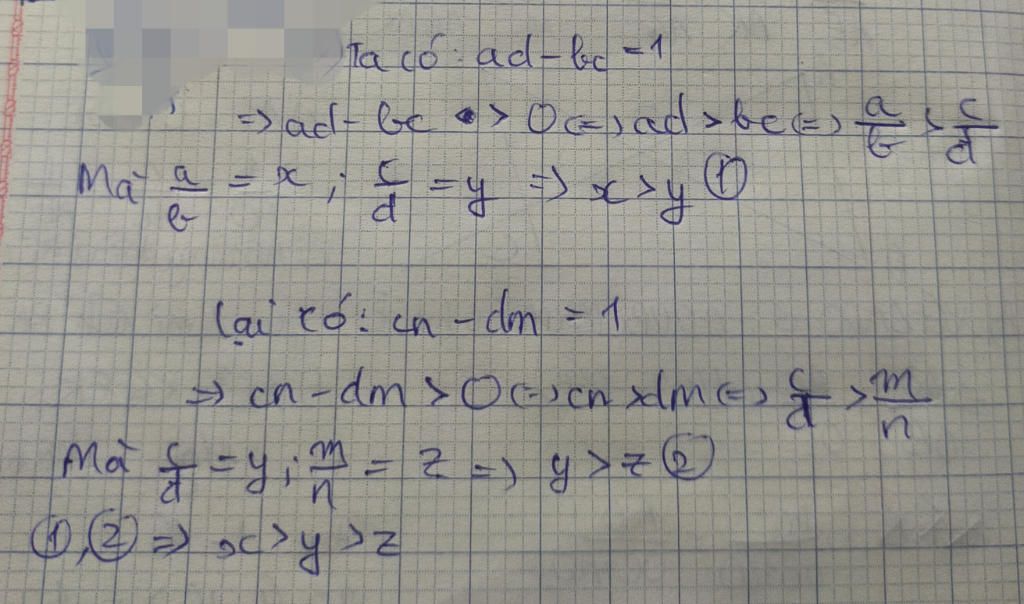 Ta có: ad - bc = 1
=> ad - bc > 0 <=> ad > bc <=> a/b > c/d
Mà a/b = x; c/d = y => x > y ①
Lại có: cn - dm = 1
=> cn - dm > 0 <=> cn > dm <=> c/d > m/n
Mà c/d = y; m/n = z => y > z ②
①, ② => x > y > z